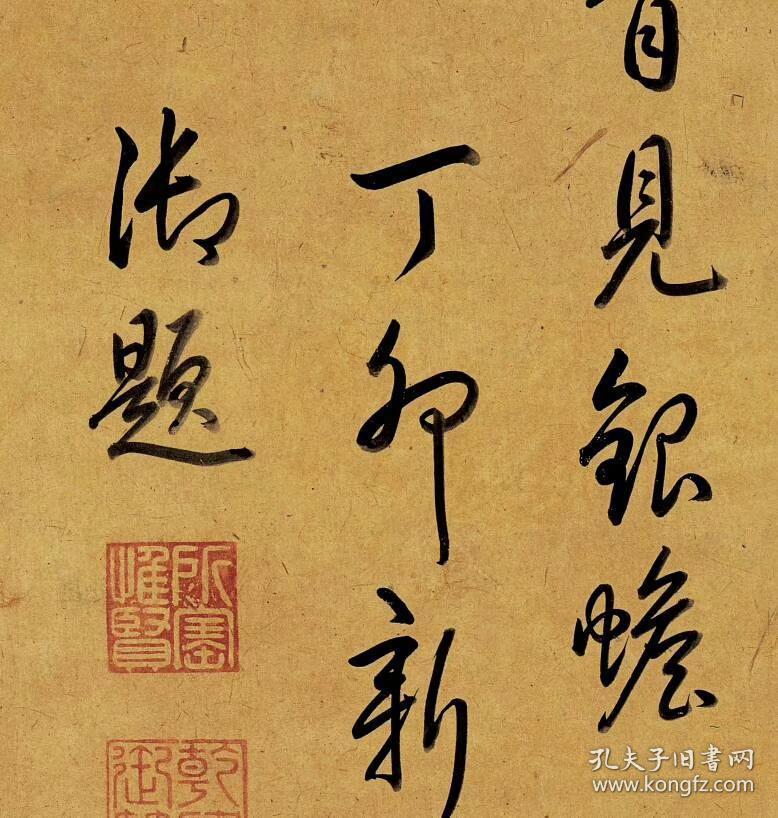 見銀蟾
丁卯新
御題
所寶
惟賢
乾
御
孔夫子旧書网
www.kongfz.com